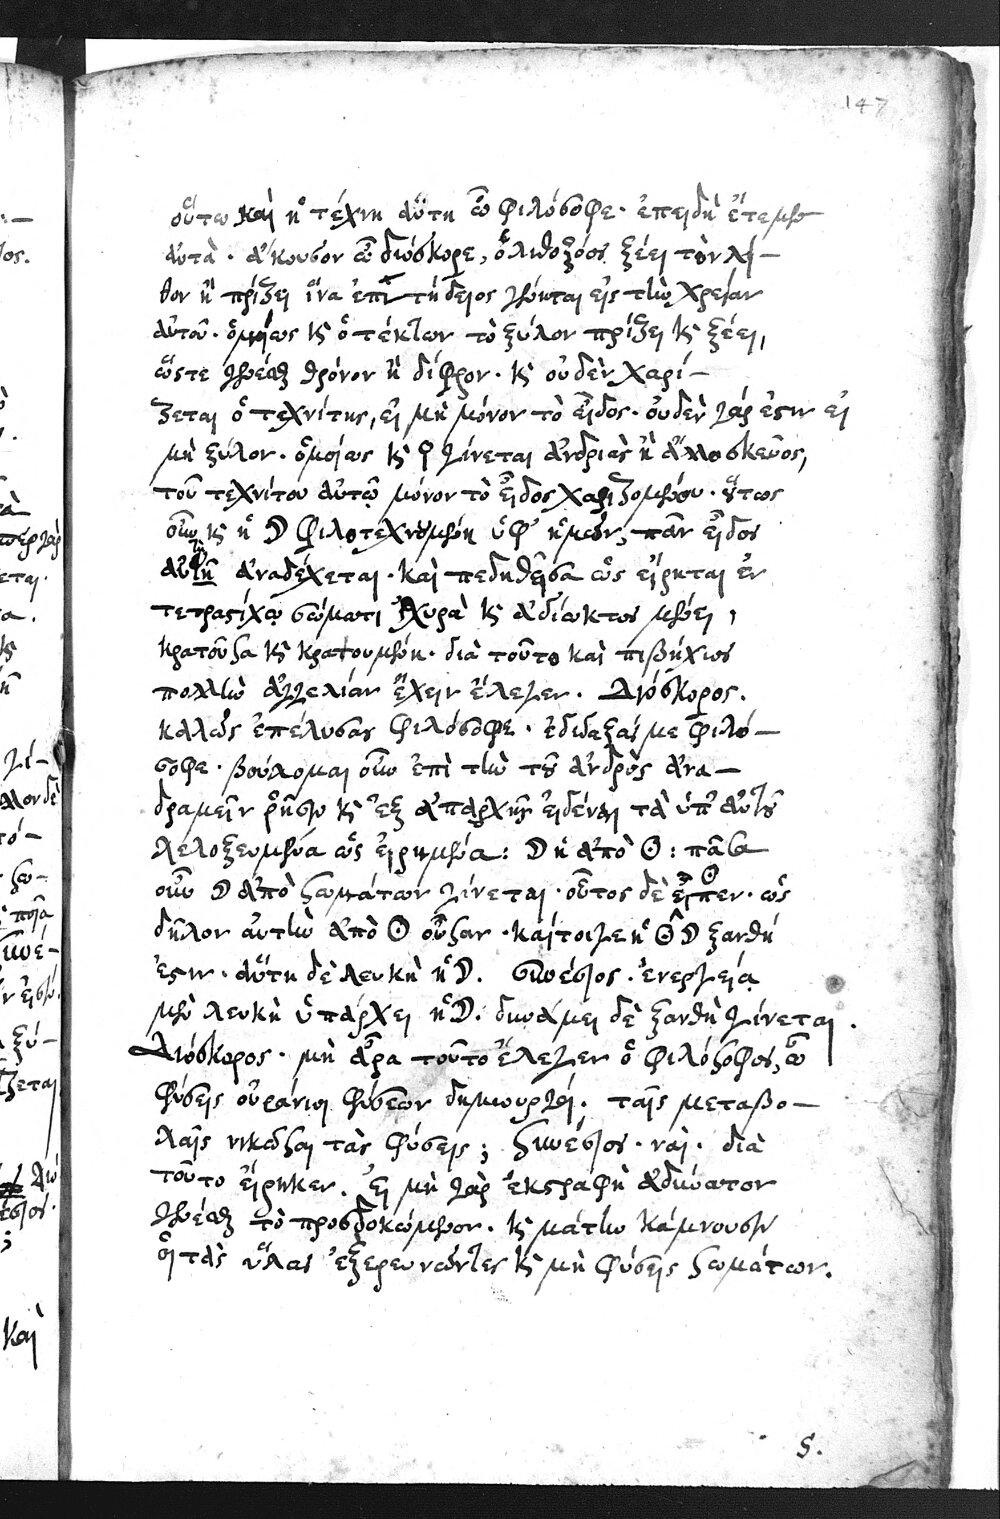 147
οὕτω καὶ ἡ τέχνη αὕτη ὦ φιλόσοφε· ἐπειδὴ ἔτεμον
αὐτὰ· ἄκουσον ὦ διόσκορε, ὁ λιθοξόος ξέει τὸν λί–
θον ἢ πρίζει ἵνα ἐπιτήδειος γένηται εἰς τὴν χρείαν
αὐτοῦ· ὁμοίως κ ὁ τέκτων τὸ ξύλον πρίζει κ ξέει,
ὥστε γενέσθαι θρόνον ἢ δίφρον· κ οὐδὲν χαρί–
ζεται ὁ τεχνίτης, εἰ μὴ μόνον τὸ εἶδος· οὐδὲν γάρ ἐστιν εἰ
μὴ ξύλον· ὁμοίως κ ♀ γίνεται ἀνδριὰς ἢ ἄλλο σκεῦος,
τοῦ τεχνίτου αὐτῷ μόνον τὸ εἶδος χαριζομένου· οὕτως
οὖν κ ἡ ☽ φιλοτεχνουμένη ὑφ' ἡμῶν, πᾶν εἶδος
αὐτὴ ἀναδέχεται· καὶ πεδηθεῖσα ὡς εἴρηται ἐν
τετραστίχῳ σώματι ἐχυρὰ κ ἀδίωκτος μένει,
κρατοῦσα κ κρατουμένη· διὰ τοῦτο καὶ πιβήχιος
πολλὴν ἀγγελίαν ἔχειν ἔλεγεν. Διόσκορος.
καλῶς ἐπέλυσας φιλόσοφε· ἐδίδαξάς με φιλό–
σοφε· βούλομαι οὖν ἐπὶ τὴν τοῦ ἀνδρὸς ἀνα–
δραμεῖν ῥῆσιν κ ἐξ ἀπαρχῆς εἰδέναι τὰ ὑπ' αὐτοῦ
λελοξευμένα ὡς εἰρημένα: ☽ ἡ ἀπὸ ☉: πᾶσα
οὖν ☽ ἀπὸ σωμάτων γίνεται· οὗτος δὲ εἶπεν ☉· ὡς
δῆλον αὐτὴν ἀπὸ ☉ οὖσαν· καίτοιγε ἡ ☉ ☽ ξανθή
ἐστιν· αὕτη δὲ λευκὴ ἡ ☽. συνέσιος· ἐνεργείᾳ
μὲν λευκὴ ὑπάρχει ἡ ☽. δυνάμει δὲ ξανθὴ γίνεται.
Διόσκορος· μὴ ἄρα τοῦτο ἔλεγεν ὁ φιλόσοφος, ὦ
φύσεις οὐράνιοι φύσεων δημιουργοί, ταῖς μεταβο–
λαῖς νικῶσαι τὰς φύσεις; συνέσιος· ναὶ· διὰ
τοῦτο εἴρηκεν. εἰ μὴ γὰρ ἐκστραφῇ ἀδύνατον
γενέσθαι τὸ προσδοκώμενον· κ μάτην κάμνουσιν
οἱ τὰς ὕλας ἐξερευνῶντες κ μὴ φύσεις σωμάτων.
S.